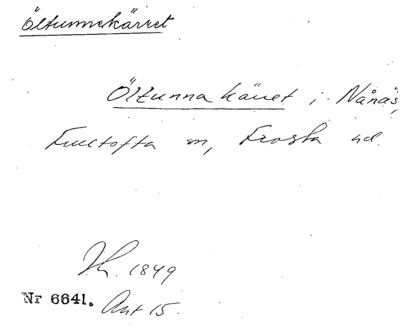 Öltunnekärret
Öltunna käret i Nånäs,
Fultofta sn, Frosta hd.
Jh. 1849
Nr 6641. Ant 15.